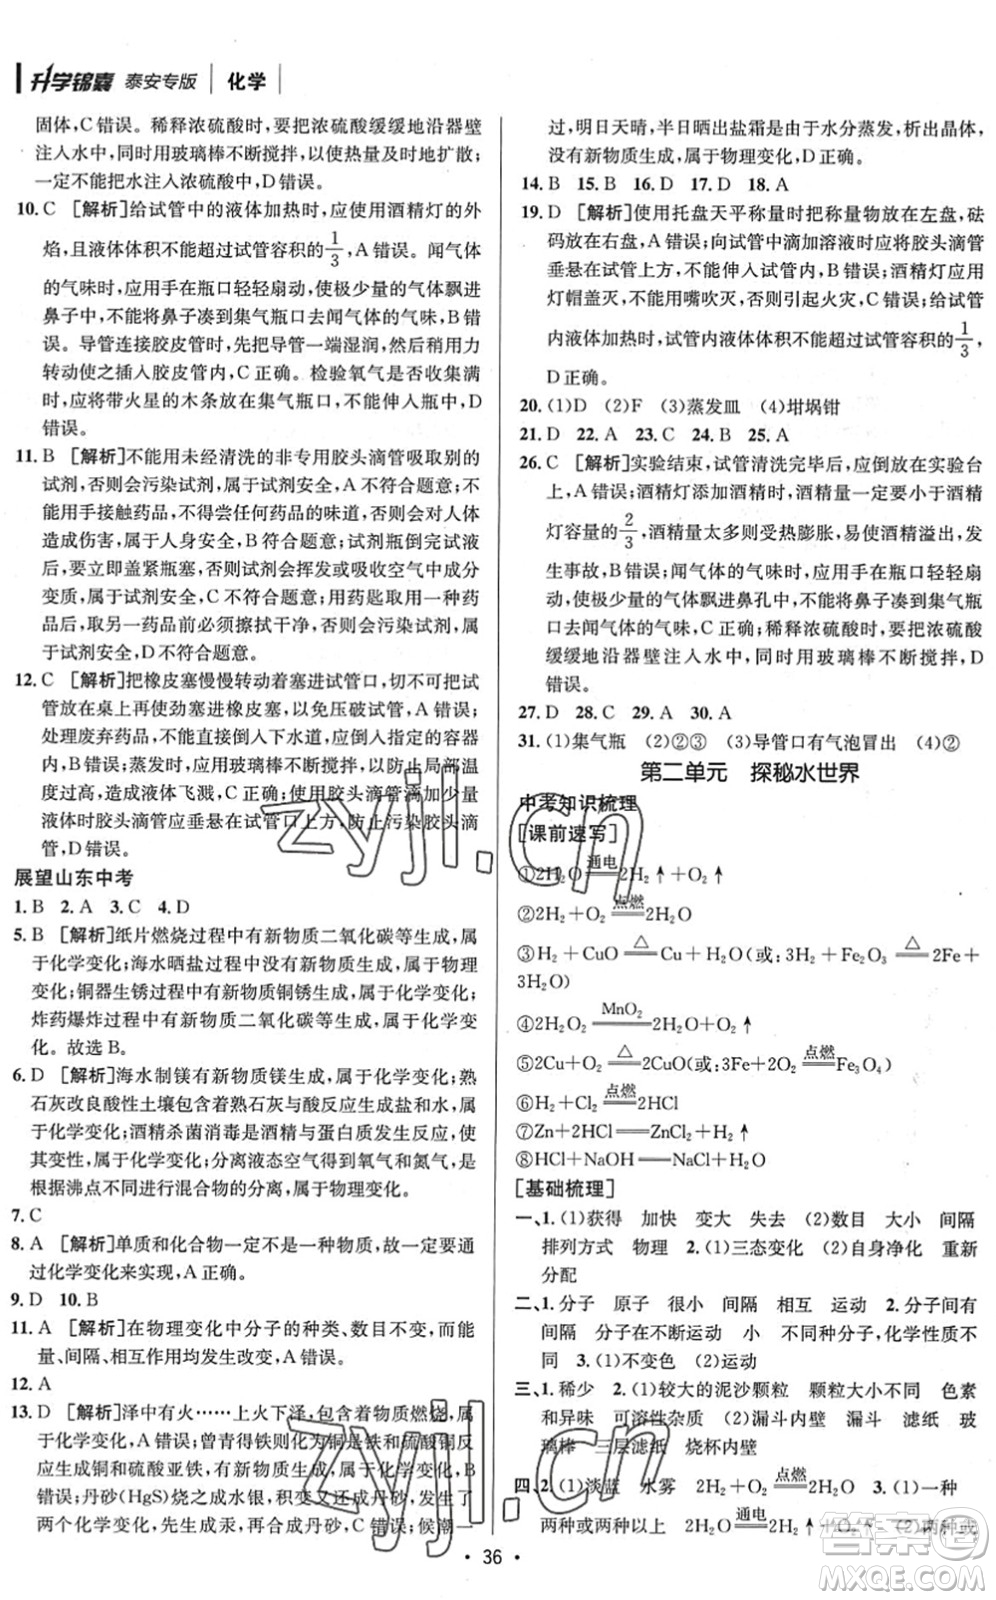 升学锦囊 泰安专版 | 化学
固体,C错误。稀释浓硫酸时,要把浓硫酸缓缓地沿器壁
注入水中,同时用玻璃棒不断搅拌,以使热量及时地扩散;
一定不能把水注入浓硫酸中,D错误。
10. C [解析]给试管中的液体加热时,应使用酒精灯的外
焰,且液体体积不能超过试管容积的1/3,A错误。闻气体
的气味时,应用手在瓶口轻轻扇动,使极少量的气体飘进
鼻子中,不能将鼻子凑到集气瓶口去闻气体的气味,B错
误。导管连接胶皮管时,先把导管一端湿润,然后稍稍用力
转动使之插入胶皮管内,C正确。检验氧气是否收集满
时,应将带火星的木条放在集气瓶口,不能伸入瓶中,D
错误。
11. B [解析]不能用未经清洗的非专用胶头滴管吸取别的
试剂,否则会污染试剂,属于试剂安全,A不符合题意;不
能用手接触药品,不得尝任何药品的味道,否则会对人体
造成伤害,属于人身安全,B符合题意;试剂瓶用毕,需要
立即盖紧瓶塞,否则试剂会挥发或吸收空气中成分
变质,属于试剂安全,C不符合题意;用药匙取用一种药品
后,取另一药品前必须擦拭干净,否则会污染试剂,
属于试剂安全,D不符合题意。
12. C [解析]把橡皮塞慢慢转动着塞进试管口,切不可把试
管放在桌上再使劲塞进橡皮塞,以免压破试管,A错误;
处理废弃药品,不能随意倾倒,应放在指定的容器中,B
错误;过滤时,玻璃棒不能在漏斗中搅拌,以免损坏滤纸,
造成液体飞溅,C正确;使用胶头滴管向试管内滴加液体
时胶头滴管应垂悬在试管口上方,防止污染胶头滴
管,D错误。
展望山东中考
1. B 2. A 3. C 4. D
5. B [解析]纸片燃烧过程中有新物质二氧化碳等生成,属
于化学变化;海水晒盐过程中没有新物质生成,属于物理
变化;铜器生锈过程中有新物质铜锈生成,属于化学变化;
炸药爆炸过程中有新物质二氧化碳等生成,属于化学变
化。故选B。
6. D [解析]海水制镁有新物质镁生成,属于化学变化;熟
石灰改良酸性土壤包含着熟石灰与酸反应生成盐和水,属
于化学变化;酒精杀菌消毒是酒精与蛋白质发生化学反
应,属于化学变化;分离液态空气可得到氧气和氮气等,是
根据沸点不同进行混合物的分离,属于物理变化。
7. C
8. A [解析]单质和化合物一定不是一种物质,故需要通
过化学变化来实现,A正确。
9. D 10. B
11. A [解析]在物理变化中分子的种类、数目不变,而能
量、间隔、相互作用均发生改变,A错误。
12. A
13. D [解析]泽中有火……上火下泽,包含着物质燃烧,属
于化学变化,A错误;曾青得铁则化为铜是铁和硫酸铜反
应生成铜和硫酸亚铁,有新物质生成,属于化学变化,B
错误;丹砂(HgS)烧之成水银,积变又还成丹砂,发生了
两个化学变化,先生成汞,再合成丹砂,C错误;候潮一
过,明日天晴,半日晒出盐霜是由于水分蒸发,析出晶体,
没有新物质生成,属于物理变化,D正确。
14. B 15. B 16. D 17. D 18. A
19. D [解析]使用托盘天平称量时把称量物放在左盘,砝
码放在右盘,A错误;向试管中滴加溶液时应将胶头滴管
垂悬在试管上方,不能伸入试管内,B错误;酒精灯应用
灯帽盖灭,不能用嘴吹灭,否则易引起火灾,C错误;给试管
内液体加热时,试管内液体体积不能超过试管容积的1/3,
D正确。
20. (1)D (2)F (3)蒸发皿 (4)坩埚钳
21. D 22. A 23. C 24. B 25. A
26. C [解析]实验结束,试管清洗完毕后,应倒放在实验台
上,A错误;酒精灯添加酒精时,酒精量一定要小于酒精
灯容量的2/3,酒精量太多则受热膨胀,易使酒精溢出,发
生事故,B错误;闻气体气味时,应用手在瓶口轻轻扇动,
使极少量的气体飘进鼻孔中,不能将鼻子凑到集气瓶
口去闻气体的气味,C正确;稀释浓硫酸时,要把浓硫酸
缓缓地沿器壁注入水中,同时用玻璃棒不断搅拌,D
错误。
27. D 28. C 29. A 30. A
31. (1)集气瓶 (2)②③ (3)导管口有气泡冒出 (4)②
第二单元 探秘水世界
中考知识梳理
[课前速写]
①2H₂O =通电= 2H₂↑+O₂↑
②2H₂+O₂ =点燃= 2H₂O
③H₂+CuO =△= Cu+H₂O(或:3H₂+Fe₂O₃ =△= 2Fe+
3H₂O)
④2H₂O₂ =MnO₂= 2H₂O+O₂↑
⑤2Cu+O₂ =△= 2CuO(或:3Fe+2O₂ =点燃= Fe₃O₄)
⑥H₂+Cl₂ =点燃= 2HCl
⑦Zn+2HCl══ZnCl₂+H₂↑
⑧HCl+NaOH══NaCl+H₂O
[基础梳理]
一、1. (1)获得 加快 变大 失去 (2)数目 大小 间隔
排列方式 物理 2. (1)三态变化 (2)自身净化 重新
分配
二、1. 分子 原子 很小 间隔 相互 运动 2. 分子间有
间隔 分子在不断运动 小 不同种分子,化学性质不
同 3. (1)不变色 (2)运动
三、1. 稀少 2. (1)较大的泥沙颗粒 颗粒大小不同 色素
和异味 可溶性杂质 (2)漏斗内壁 漏斗 滤纸 玻
璃棒 三层滤纸 烧杯内壁
四、2. (1)淡蓝 水雾 2H₂+O₂ =点燃= 2H₂O 3. (1)一种
两种或两种以上 2H₂O =通电= 2H₂↑+O₂↑ (2)两种或
• 36 •
zyjl.cn
zyjl.cn
答案圈
MXQE.COM